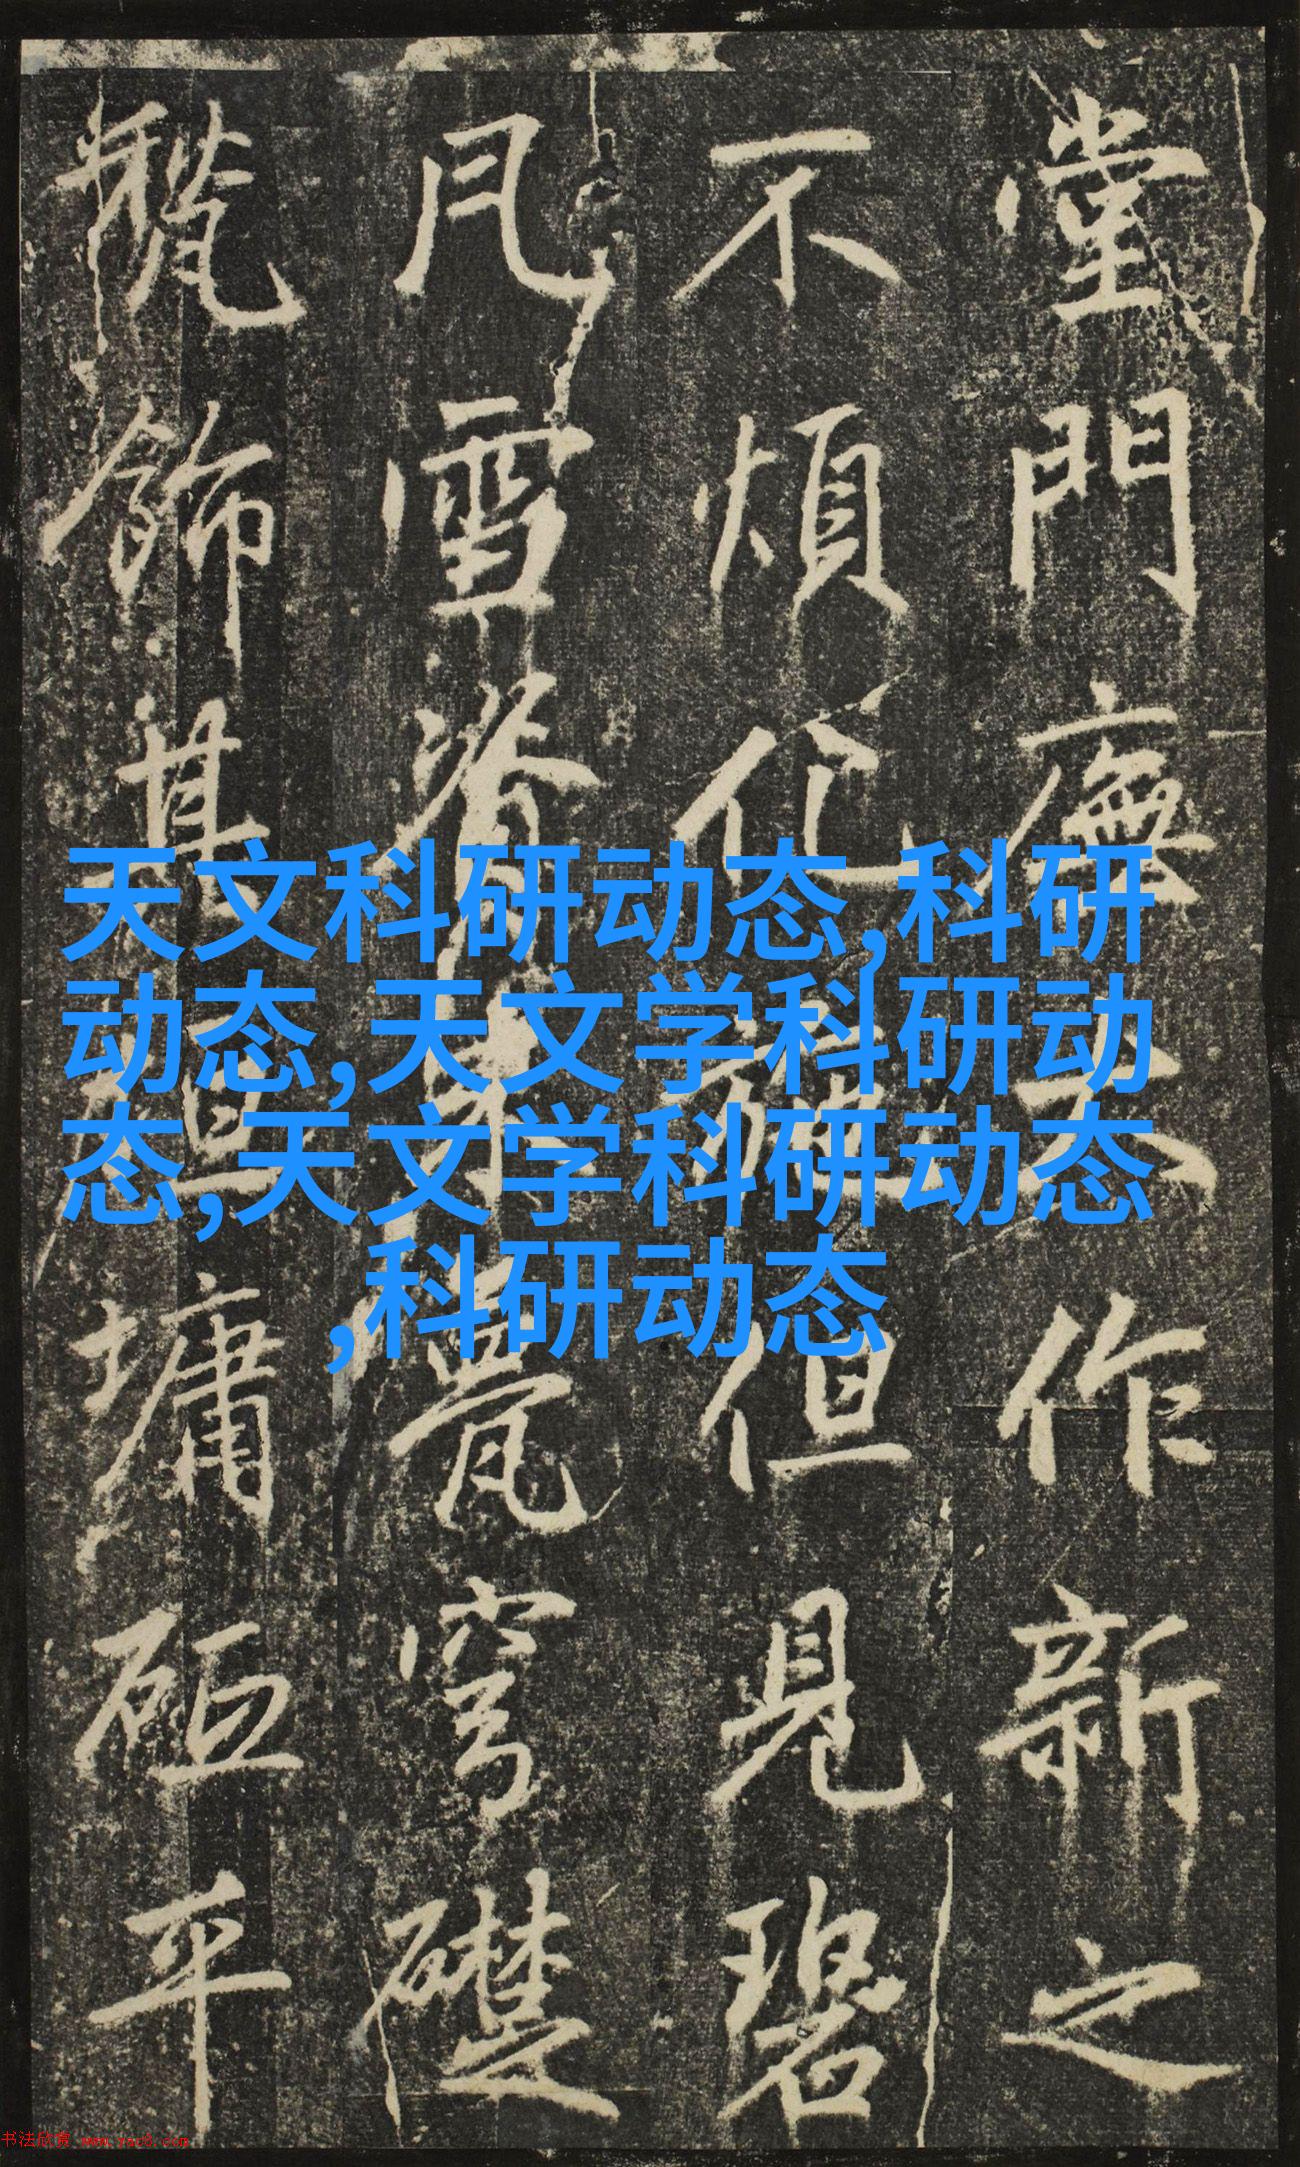 堂門廡作新之
不煩化施但見碧
雪脊甍穹礎
飾其垣墉砥平
天文科研动态,科研
动态,天文学科研动
态,天文学科研动态
,科研动态
书法欣赏 www.yac8.com